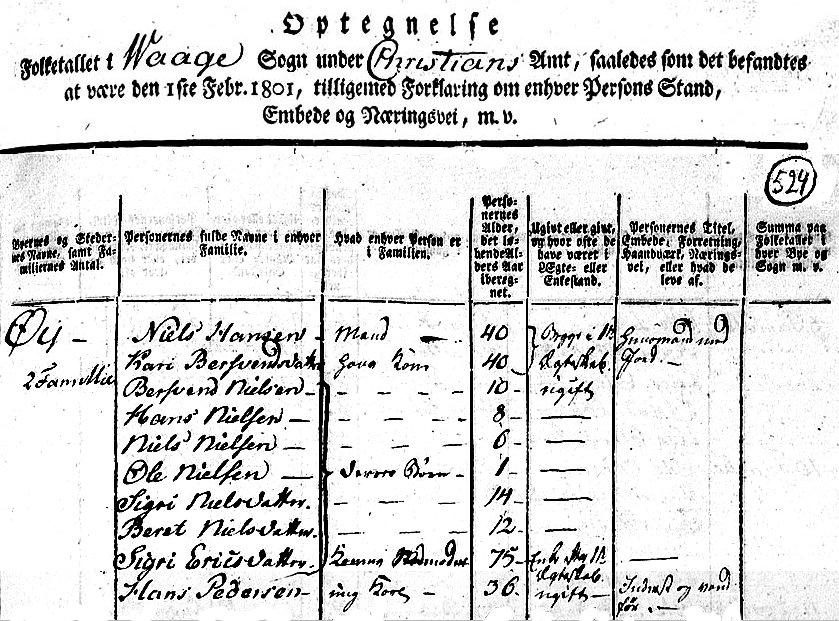 Optegnelse
Folketallet i Waage Sogn under Christians Amt, saaledes som det befandtes
at være den 1ste Febr. 1801, tilligemed Forklaring om enhver Persons Stand,
Embede og Næringsvei, m. v.
524
Byernes og Stedernes Navne, samt Familiernes Antal.
Personernes fulde Navne i enhver Familie.
Hvad enhver Person er i Familien.
Personernes Alder, det løbende Alders Aar iberegnet.
Ugivt eller givt, og hvor ofte de have været i Ægte- eller Enkestand.
Personernes Titel, Embede, Forretning, Haandværk, Næringsvei, eller hvad de leve af.
Summa paa Folketallet i hver Bye og Sogn m. v.
Øij - Niels Hansen - Mand - 40 Begge i 1st Huusmand med
2 Familier Kari Bersvendsdatter hans Kone 40 Ægteskab. Jord. -
Bersvend Nielsen - - - - - 10 - ugift
Hans Nielsen - - - - - 8 - —
Niels Nielsen - - - - 6 - —
Ole Nielsen — deres Børn - 1 - —
Sigri Nielsdatter - - - - 14 - —
Beret Nielsdatter - — - — 12 - —
Sigri Ericsdatter - Konens 75 - Enke 1st —
Ægteskab.
Hans Pedersen - 36 - ugift - Inderst og
før. -